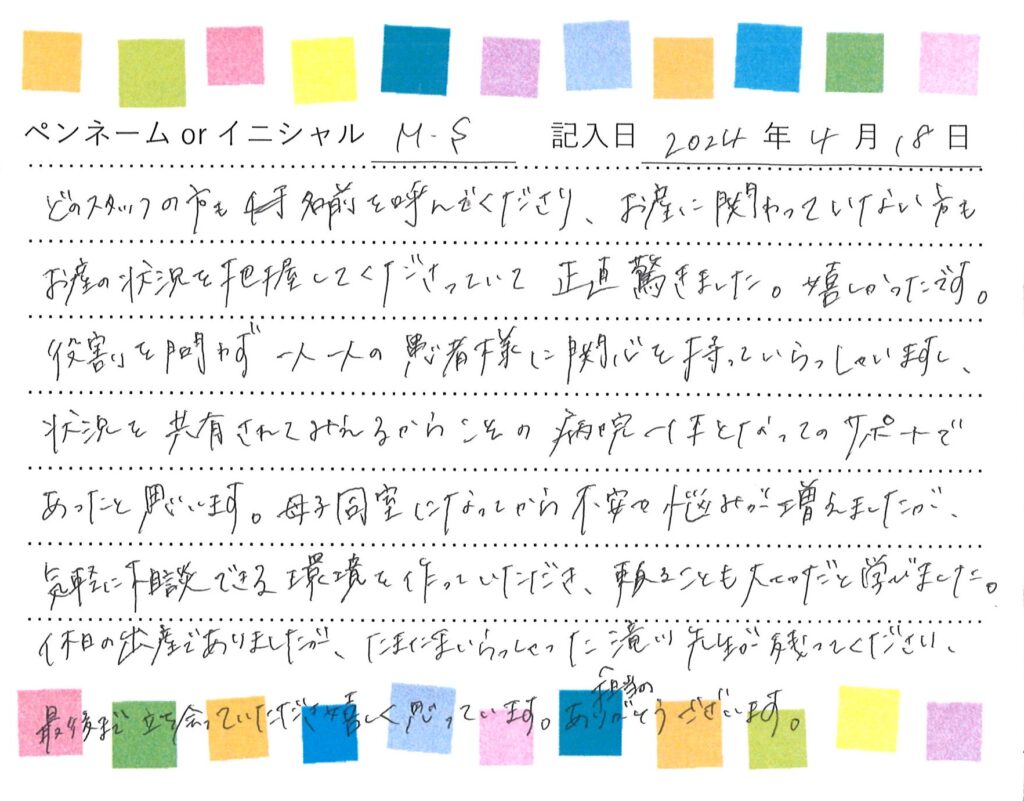 ペンネーム or イニシャル M.S 記入日 2024 年 4 月 18 日
どのスタッフの方も名前を呼んでくださり、お産に関わっていない方も
お産の状況を把握してくださっていて正直驚きました。嬉しかったです。
役割を問わず一人一人の患者様に関心を持っていらっしゃいますし、
状況を共有されてみえるからこその病院一体となってのサポートで
あったと思います。母子同室になってから不安や悩みが増えましたが、
気軽に相談できる環境を作っていただき、頼ることも大切だと学びました。
休日の出産でありましたが、たまたまいらっしゃった滝川先生が残ってくださり、
担当の
最後まで立ち会っていただき嬉しく思っています。ありがとうございます。